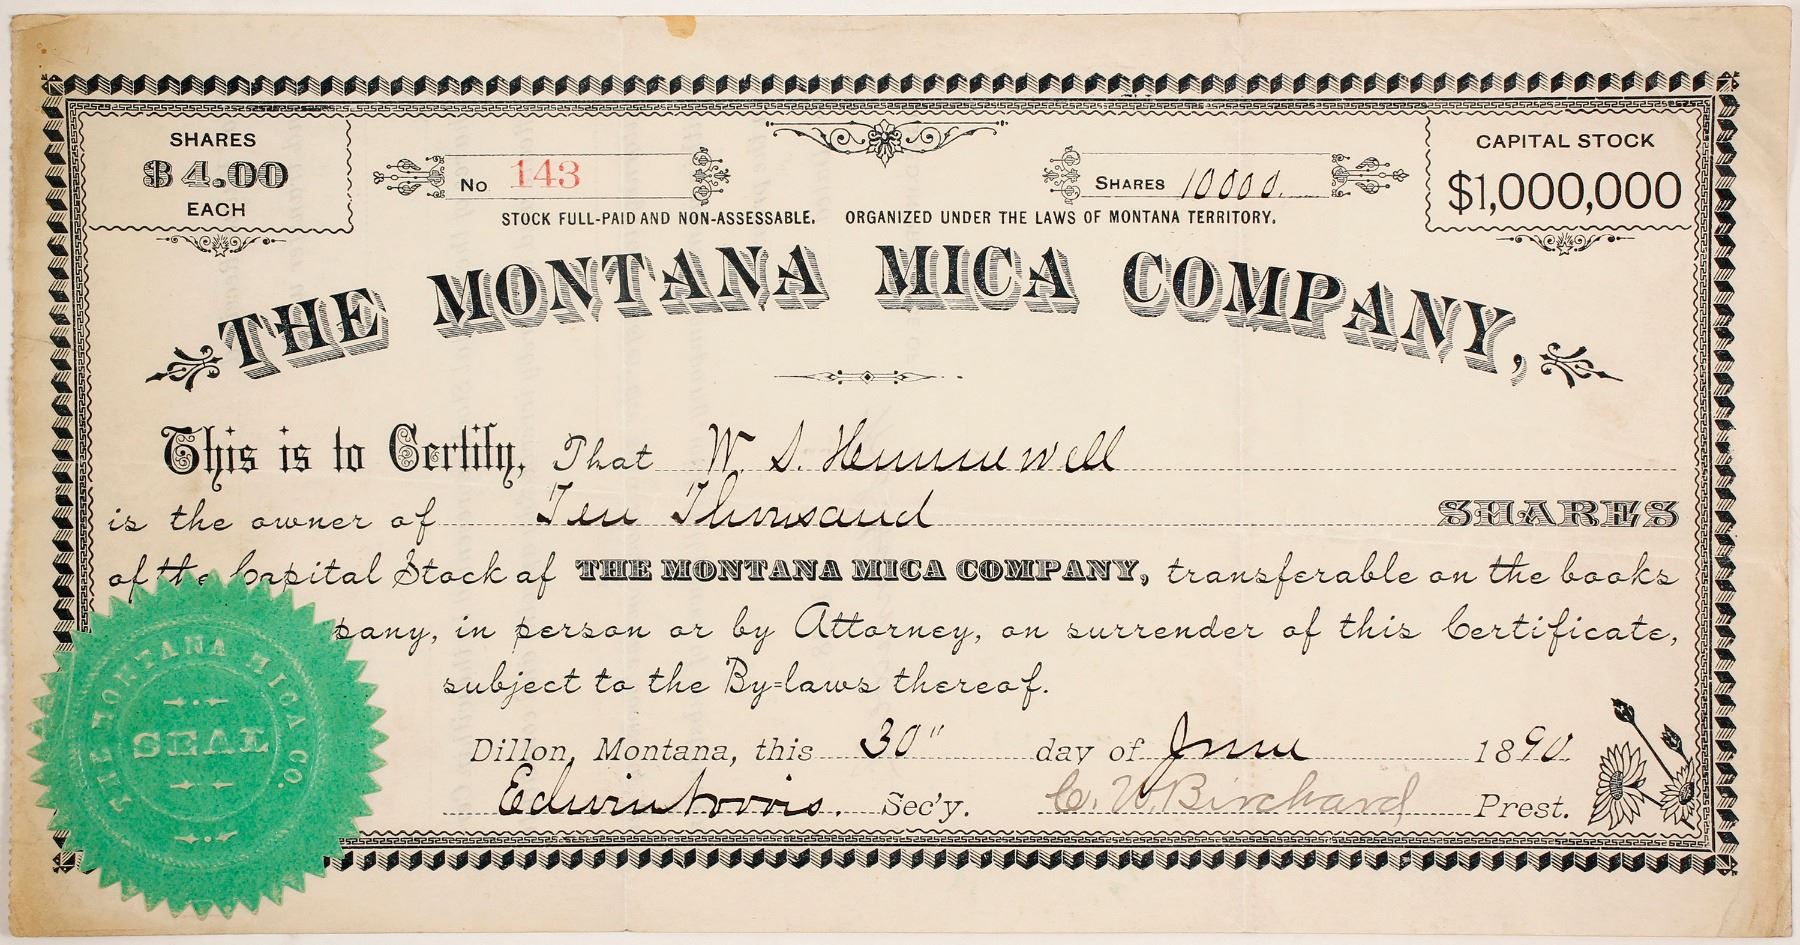 SHARES
$4.00
EACH
No 143
SHARES 10000.
CAPITAL STOCK
$1,000,000
STOCK FULL-PAID AND NON-ASSESSABLE. ORGANIZED UNDER THE LAWS OF MONTANA TERRITORY.
THE MONTANA MICA COMPANY,
This is to Certify, That W. S. Hennewell
is the owner of Ten Thousand SHARES
of the Capital Stock of THE MONTANA MICA COMPANY, transferable on the books
pany, in person or by Attorney, on surrender of this Certificate,
subject to the By=laws thereof.
Dillon, Montana, this 30" day of June 1890.
Edwin Norris. Sec'y. C. W. Birchard Prest.
THE MONTANA MICA CO.
SEAL